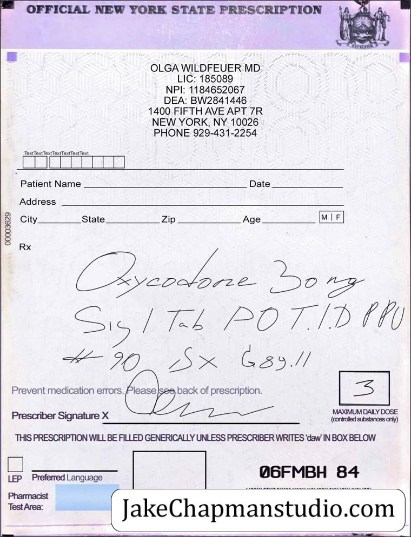 OFFICIAL NEW YORK STATE PRESCRIPTION
OLGA WILDFEUER MD
LIC: 185089
NPI: 1184652067
DEA: BW2841446
1400 FIFTH AVE APT 7R
NEW YORK, NY 10026
PHONE 929-431-2254
TestTextTextTextTextTextText
Patient Name Date
Address
City State Zip Age M F
00003629
Rx
Oxycodone 30mg
Sig 1 Tab PO T.I.D
# 90 G89.11
Prevent medication errors. Please see back of prescription.
3
Prescriber Signature X
MAXIMUM DAILY DOSE
(controlled substances only)
THIS PRESCRIPTION WILL BE FILLED GENERICALLY UNLESS PRESCRIBER WRITES 'daw' IN BOX BELOW
LEP Preferred Language
06FMBH 84
Pharmacist
Test Area:
JakeChapmanstudio.com